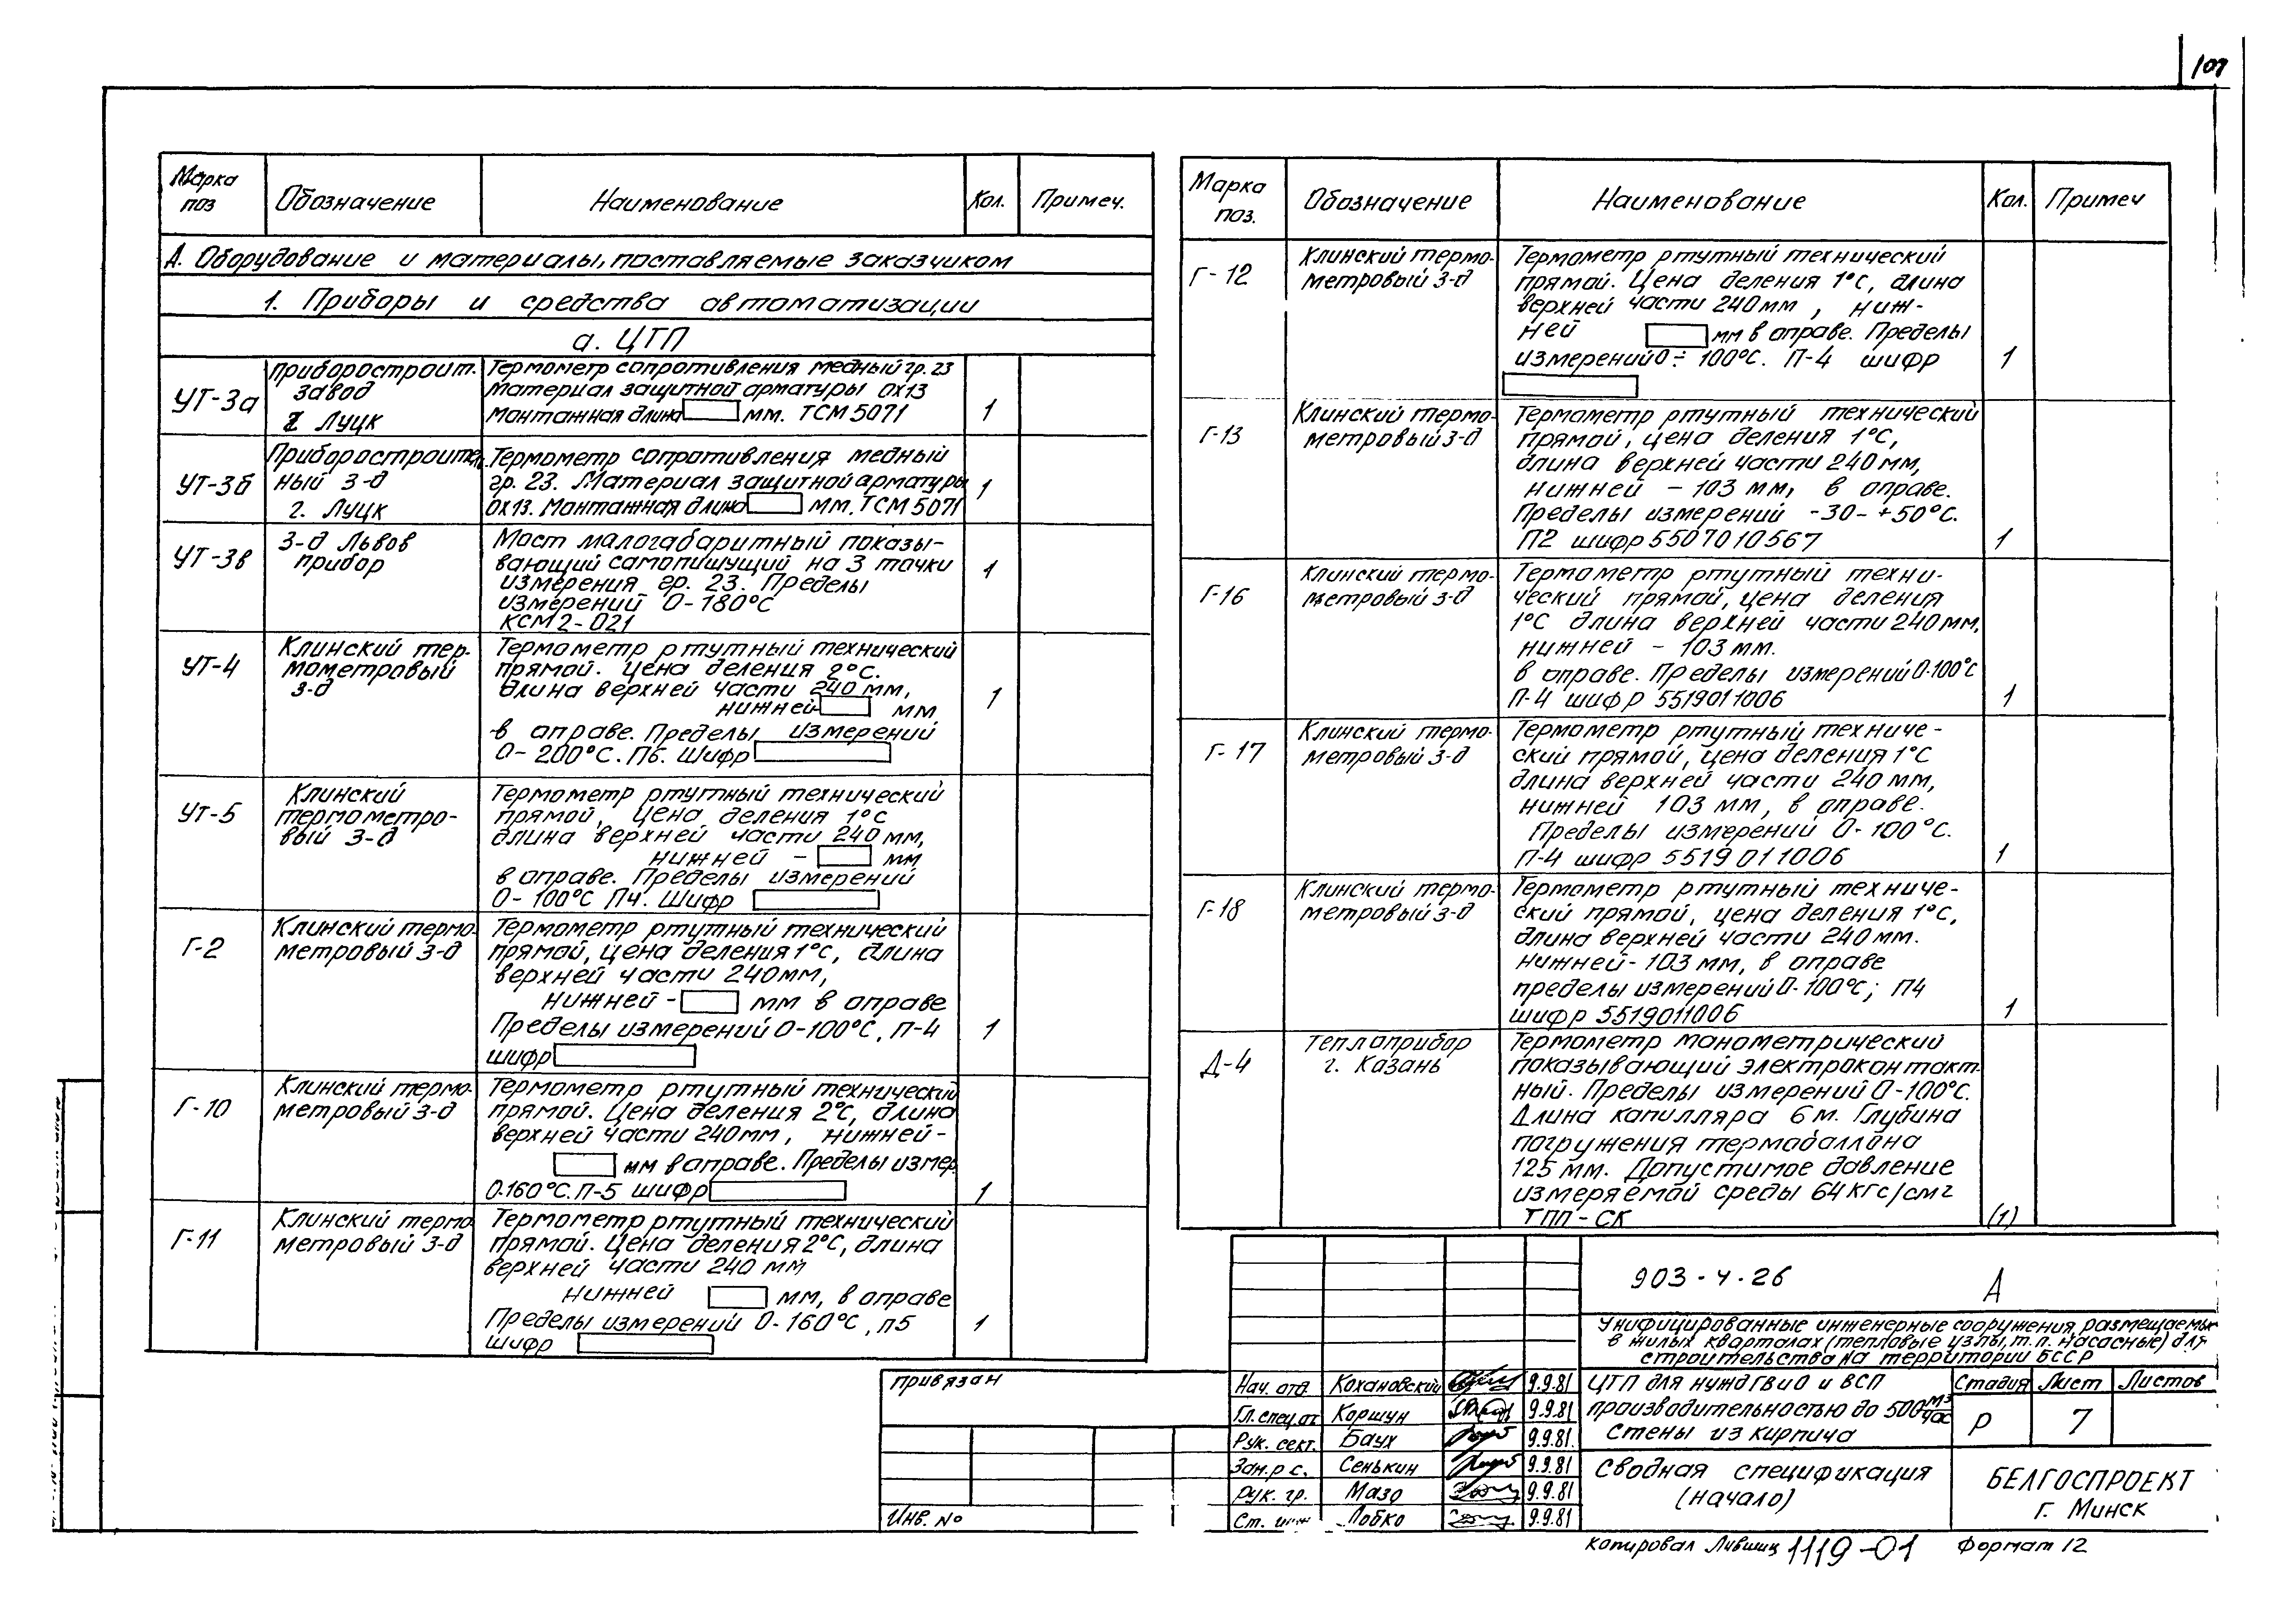 107
Марка поз
Обозначение
Наименование
Кол.
Примеч.
А. Оборудование и материалы, поставляемые заказчиком
1. Приборы и средства автоматизации
а. ЦТП
УТ-3а
Приборостроит.
завод
г. Луцк
Термометр сопротивления медный гр. 23
Материал защитной арматуры 0Х13
Монтажная длина мм. ТСМ 5071
1
УТ-3б
Приборостроител.
ный з-д
г. Луцк
Термометр сопротивления медный
гр. 23. Материал защитной арматуры
0Х13. Монтажная длина мм. ТСМ 5071
1
УТ-3в
З-д Львов
прибор
Мост малогабаритный показы-
вающий самопишущий на 3 точки
измерения гр. 23. Пределы
измерений 0-180°С
КСМ2-021
1
УТ-4
Клинский тер-
мометровый
з-д
Термометр ртутный технический
прямой. Цена деления 2°С.
Длина верхней части 240 мм,
нижней мм
в оправе. Пределы измерений
0-200°С. П6. Шифр
1
УТ-5
Клинский
термометро-
вый з-д
Термометр ртутный технический
прямой, цена деления 1°С
длина верхней части 240 мм,
нижней - мм
в оправе. Пределы измерений
0-100°С П4. Шифр
Г-2
Клинский термо-
метровый з-д
Термометр ртутный технический
прямой, цена деления 1°С, длина
верхней части 240мм,
нижней - мм в оправе
Пределы измерений 0-100°С, П-4
шифр
1
Г-10
Клинский термо-
метровый з-д
Термометр ртутный технический
прямой. Цена деления 2°С, длина
верхней части 240мм, нижней-
мм в оправе. Пределы измер.
0-160°С. П-5 шифр
1
Г-11
Клинский термо
метровый з-д
Термометр ртутный технический
прямой. Цена деления 2°С, длина
верхней части 240 мм
нижней мм, в оправе
Пределы измерений 0-160°С, п5
шифр
1
Марка поз.
Обозначение
Наименование
Кол.
Примеч
Г-12
Клинский термо-
метровый з-д
Термометр ртутный технический
прямой. Цена деления 1°С, длина
верхней части 240мм, ниж-
ней мм в оправе. Пределы
измерений 0÷100°С. П-4 шифр
1
Г-13
Клинский термо-
метровый з-д
Термометр ртутный технический
прямой, цена деления 1°С,
длина верхней части 240мм,
нижней - 103 мм, в оправе.
Пределы измерений -30-+50°С.
П2 шифр 5507010567
1
Г-16
Клинский термо-
метровый з-д
Термометр ртутный техни-
ческий прямой, цена деления
1°С длина верхней части 240мм,
нижней - 103 мм.
в оправе. Пределы измерений 0-100°С
П-4 шифр 5519011006
1
Г-17
Клинский термо-
метровый з-д
Термометр ртутный техниче-
ский прямой, цена деления 1°С
длина верхней части 240 мм,
нижней 103 мм, в оправе.
Пределы измерений 0-100°С.
П-4 шифр 5519011006
1
Г-18
Клинский термо-
метровый з-д
Термометр ртутный техниче-
ский прямой, цена деления 1°С,
длина верхней части 240мм.
нижней-103 мм, в оправе
пределы измерений 0-100°С; П4
шифр 5519011006
1
Д-4
Теплоприбор
г. Казань
Термометр манометрический
показывающий электроконтакт-
ный. Пределы измерений 0-100°С.
Длина капилляра 6м. Глубина
погружения термобаллона
125 мм. Допустимое давление
измеряемой среды 64кгс/см2
ТПП-СК
(1)
903-4-26 А
Унифицированные инженерные сооружения размещаемые
в жилых кварталах (тепловые узлы, т.п. насосные) для
строительства на территории БССР
привязан
Инв. №
Нач. отд. Кохановский 9.9.81
Гл. спец. от Коршун 9.9.81
Рук. сект. Баух 9.9.81.
Зам. р с. Сенькин 9.9.81
Рук. гр. Мазо 9.9.81
Ст. инж Лобко 9.9.81
ЦТП для нужд ГВ и О и ВСП
производительностью до 500 м3/час
Стены из кирпича
Стадия Лист Листов
Р 7
Сводная спецификация
(начало)
БЕЛГОСПРОЕКТ
г. Минск
Копировал Лившиц 1119-01 Формат 12